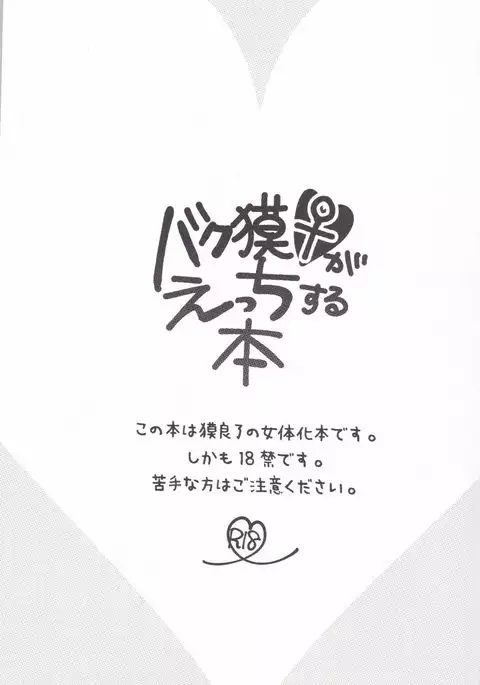 バク獏♀が
えっちする
本
この本は獏良了の女体化本です。
しかも18禁です。
苦手な方はご注意ください。
R18